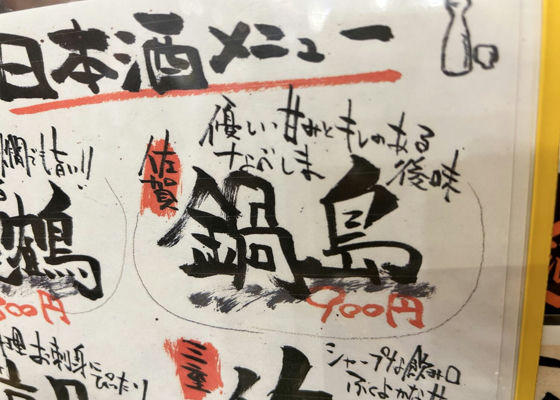 日本酒メニュー
優しい甘みとキレのある後味
佐賀
なべしま
鍋島
900円
鶴
00円
お刺身にぴったり
三重
シャープな飲み口
ふくよかな